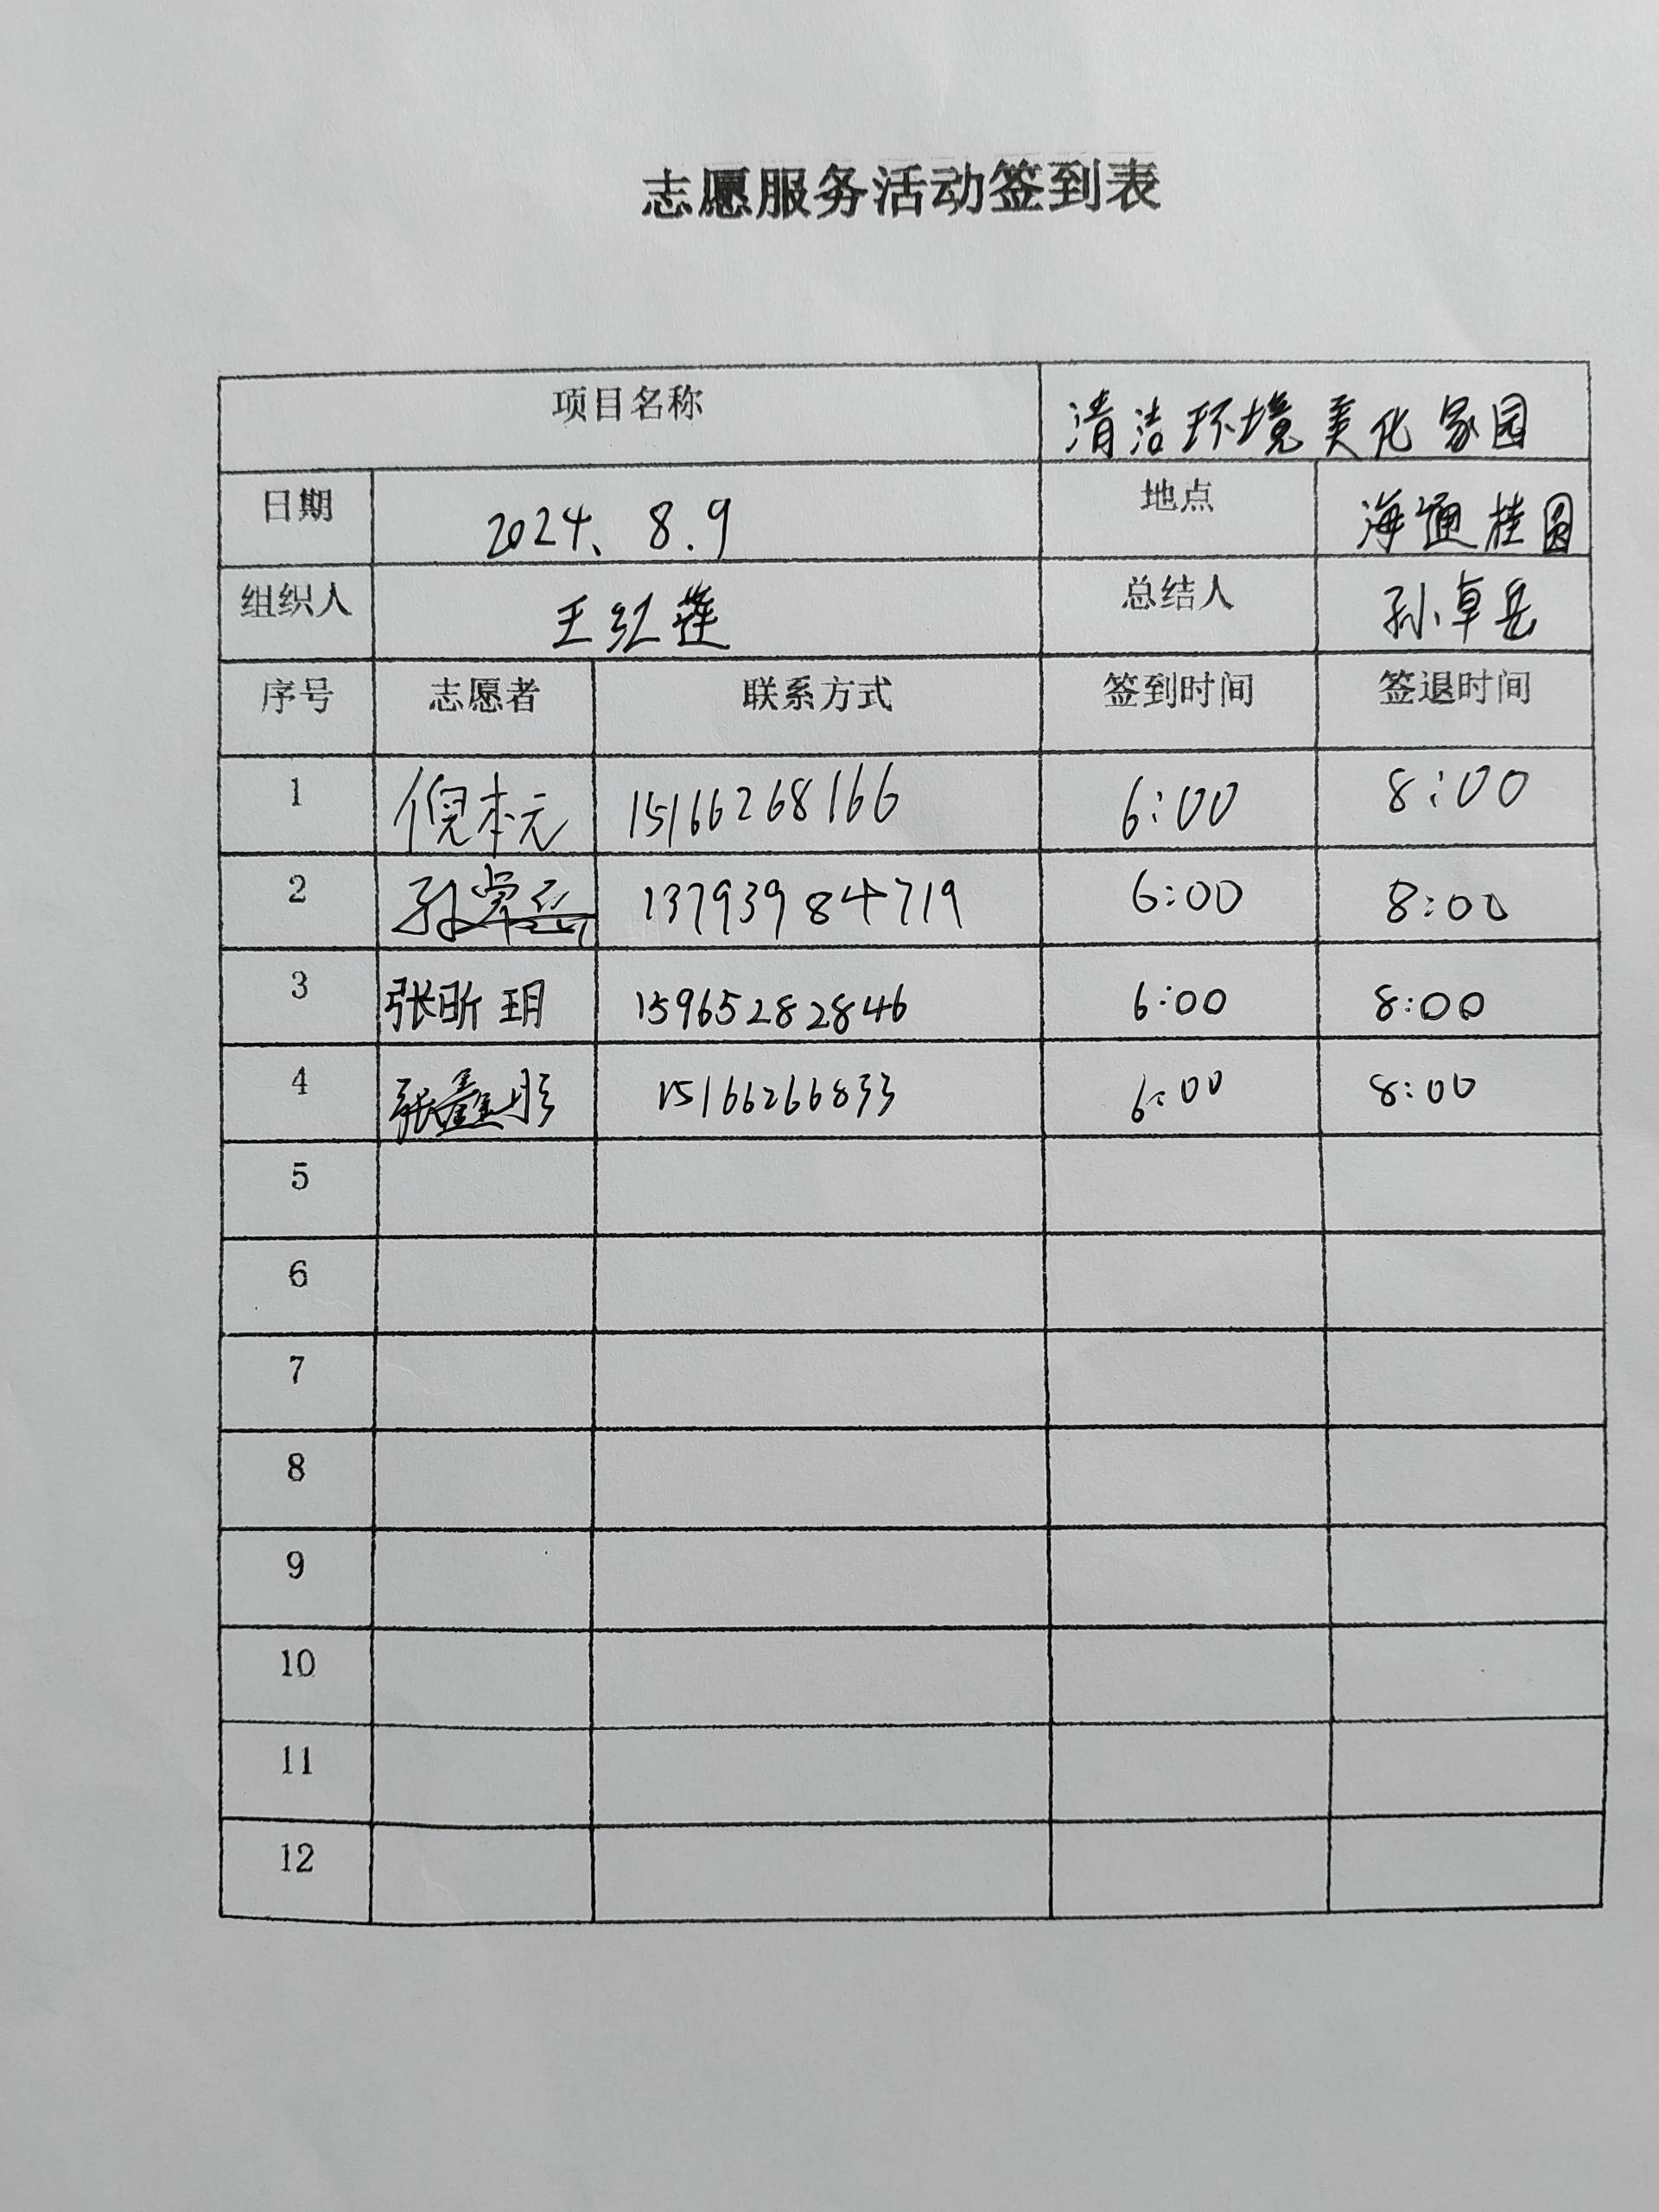 志愿服务活动签到表
项目名称 清洁环境美化家园
日期 2024、8.9 地点 海通桂圆
组织人 王红莲 总结人 孙卓岳
序号 志愿者 联系方式 签到时间 签退时间
1 倪本元 15166268166 6:00 8:00
2 孙卓岳 13793984719 6:00 8:00
3 张昕玥 15965282846 6:00 8:00
4 张鑫彤 15166266833 6:00 8:00
5
6
7
8
9
10
11
12